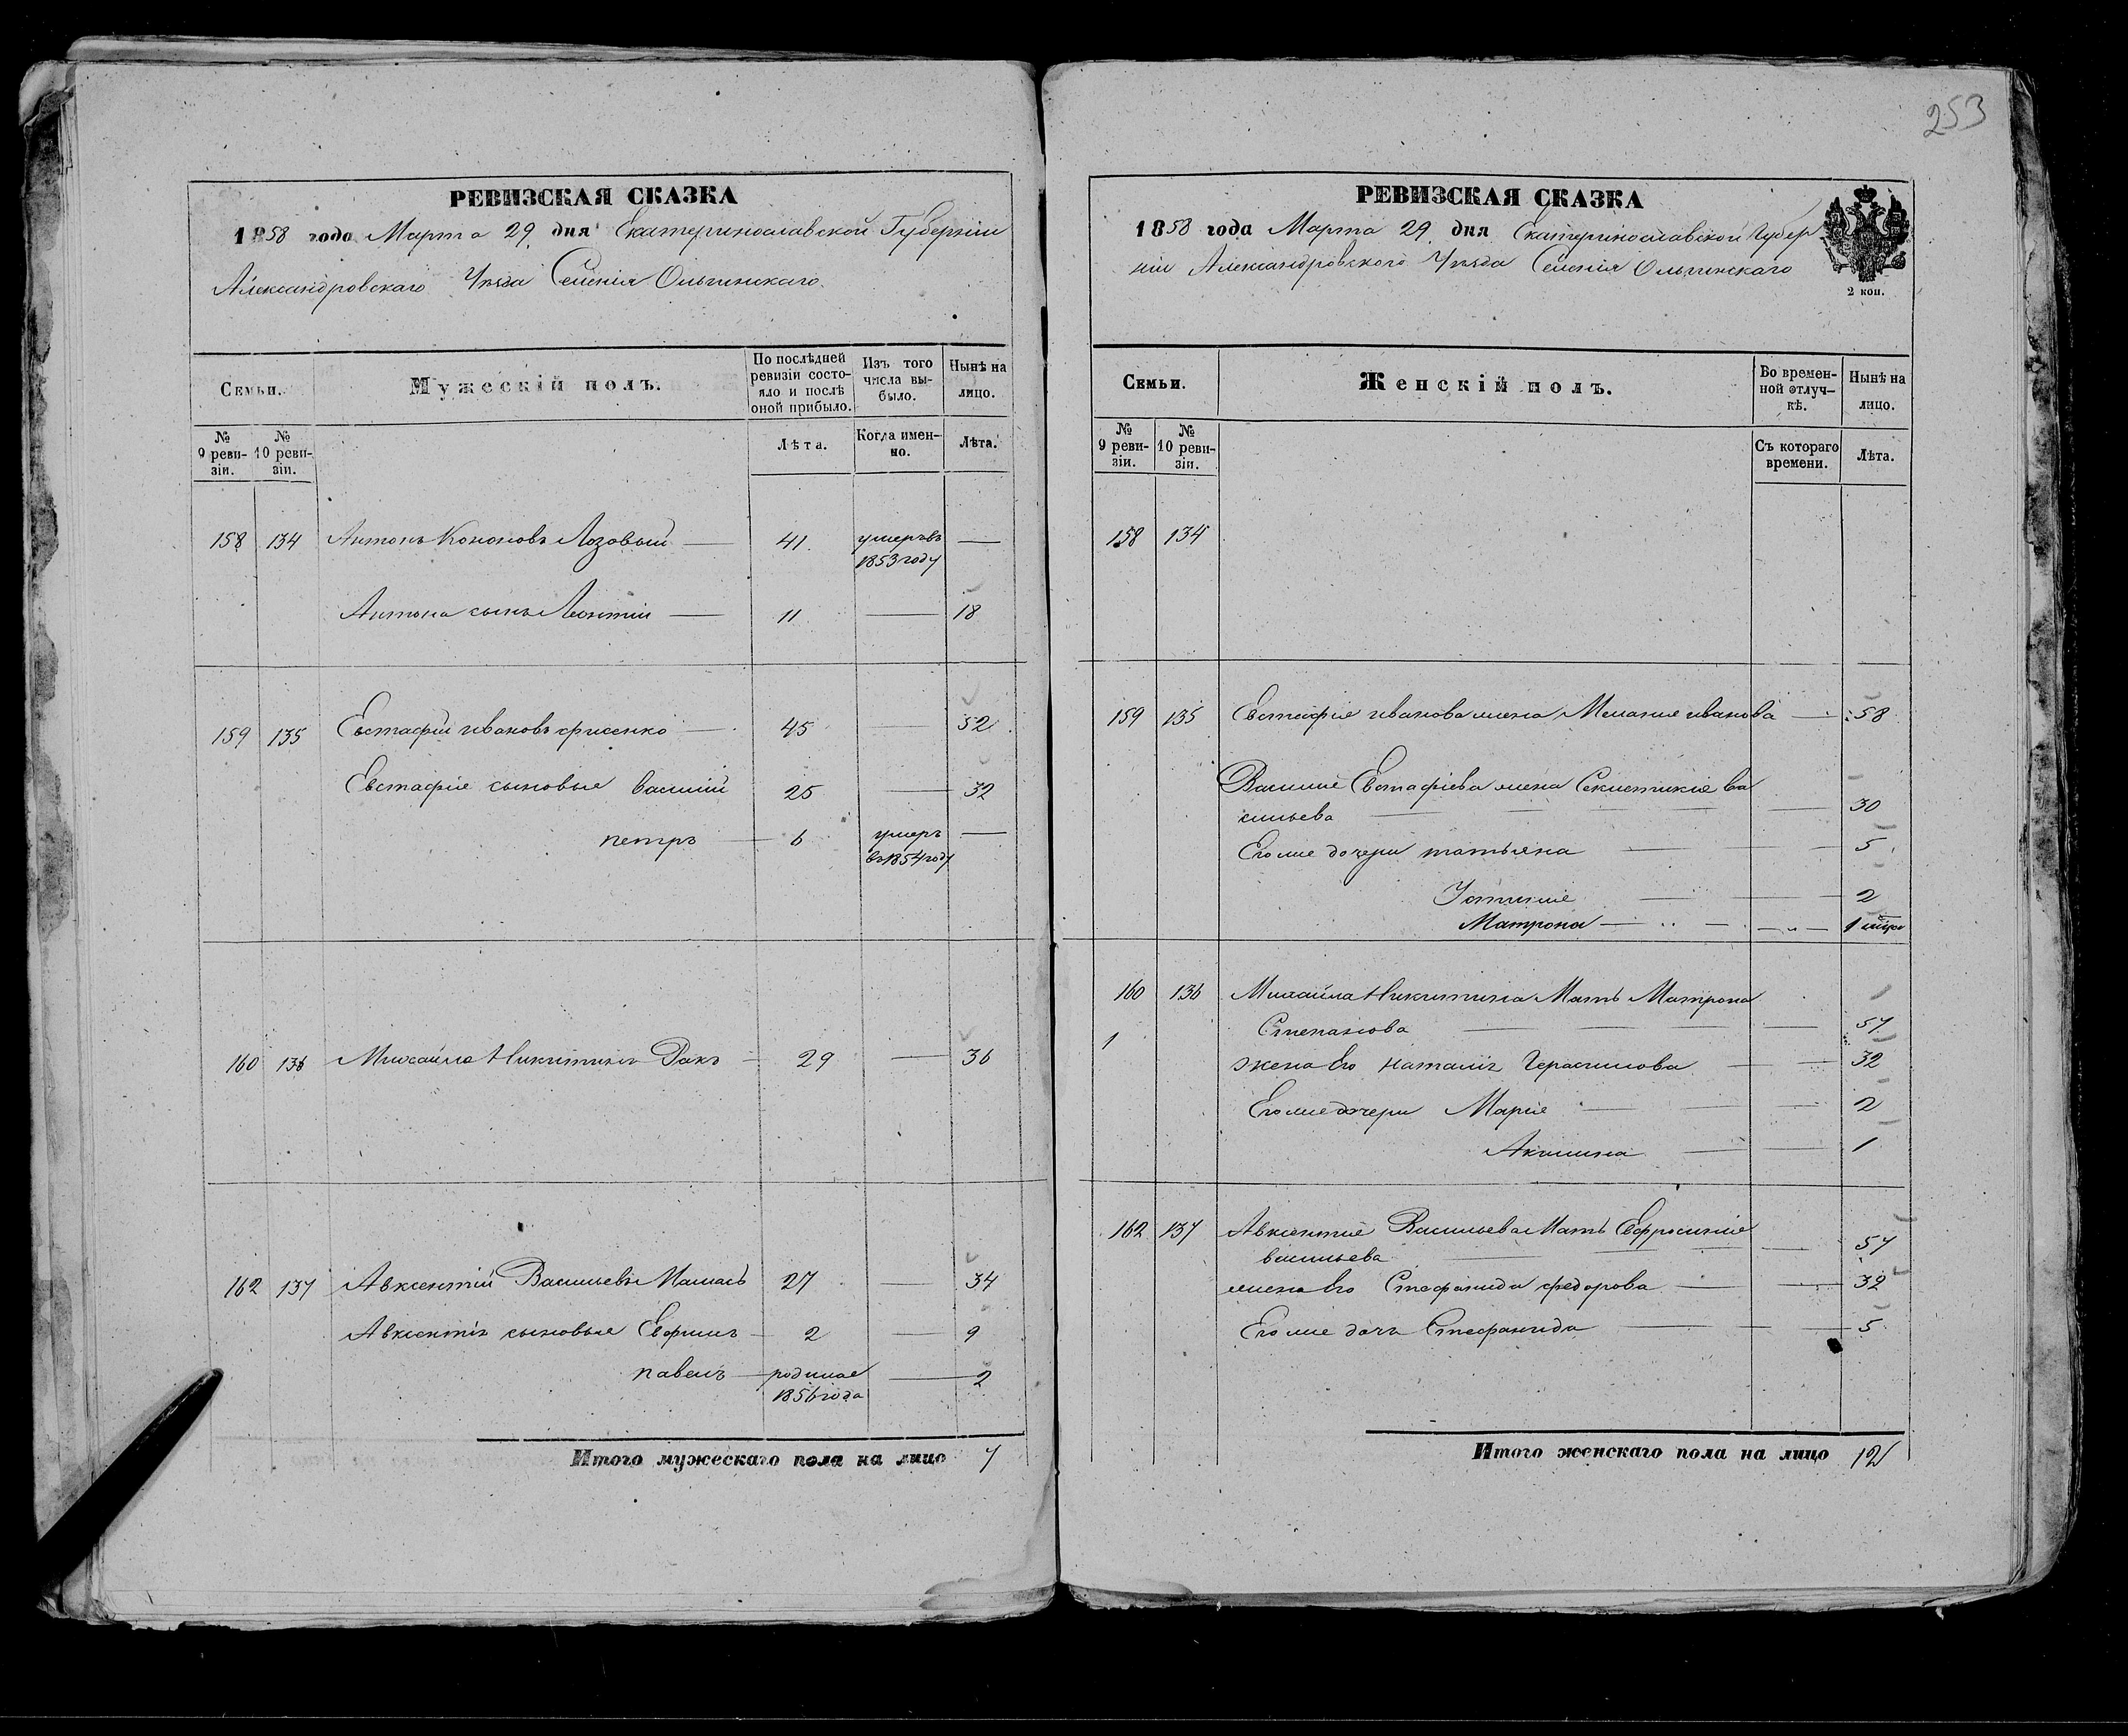 253
РЕВИЗСКАЯ СКАЗКА
1858 года Марта 29 дня Екатеринославской Губернии
Александровскаго Уѣзда Селенія Ольгинскаго
Семьи.
Мужескій полъ.
По послѣдней ревизіи состояло и послѣ оной прибыло.
Изъ того числа выбыло.
Нынѣ на лицо.
№ 9 ревизіи.
№ 10 ревизіи.
Лѣта.
Когда именно.
Лѣта.
158 134 Антонъ Кононовъ Лозовый — 41 умеръ въ 1853 году —
Антона сынъ Леонтій — 11 — 18
159 135 Евстафій Ивановъ — 45 — 52
Евстафіе сыновье Василій 25 — 32
петръ — 6 умеръ въ 1854 году —
160 136 Михайла Никитинъ Ракъ — 29 — 36
162 137 Авксентій Васильевъ 27 — 34
Авксентія сыновье Ефимъ — 2 — 9
павелъ — родился 1856 года — 2
Итого мужескаго пола на лицо 7
РЕВИЗСКАЯ СКАЗКА
1858 года Марта 29 дня Екатеринославской Губер
ніи Александровского Уѣзда Селенія Ольгинскаго
2 коп.
Семьи.
Женскій полъ.
Во временной отлучкѣ.
Нынѣ на лицо.
№ 9 ревизіи.
№ 10 ревизіи.
Съ котораго времени.
Лѣта.
158 134
159 135 Евстафіе Иванова жена Меланіе иванова — 58
Василіе Евстафіева жена ва
сильева — 30
Его же дочери татьяна — 5
Устиніе — 2
Матрона — 1
160 136 Михайла Никитина Мать Матрона
1 Степанова — 57
жена Его наталія Герасимова — 32
Его же дочери Маріе — 2
Акилина — 1
162 137 Авксентіе Васильева Мать Ефросиніе
васильева — 57
жена Его Стефанида федорова — 32
Его же дочь Стефанида — 5
Итого женскаго пола на лицо 12